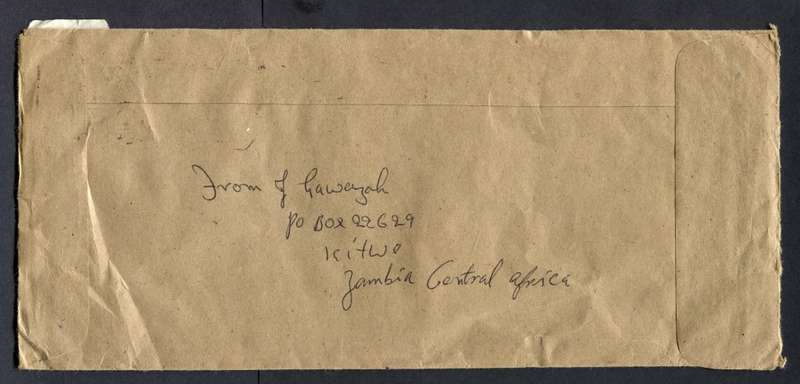 From J
PO BOX 22629
Kitwe
Zambia Central africa